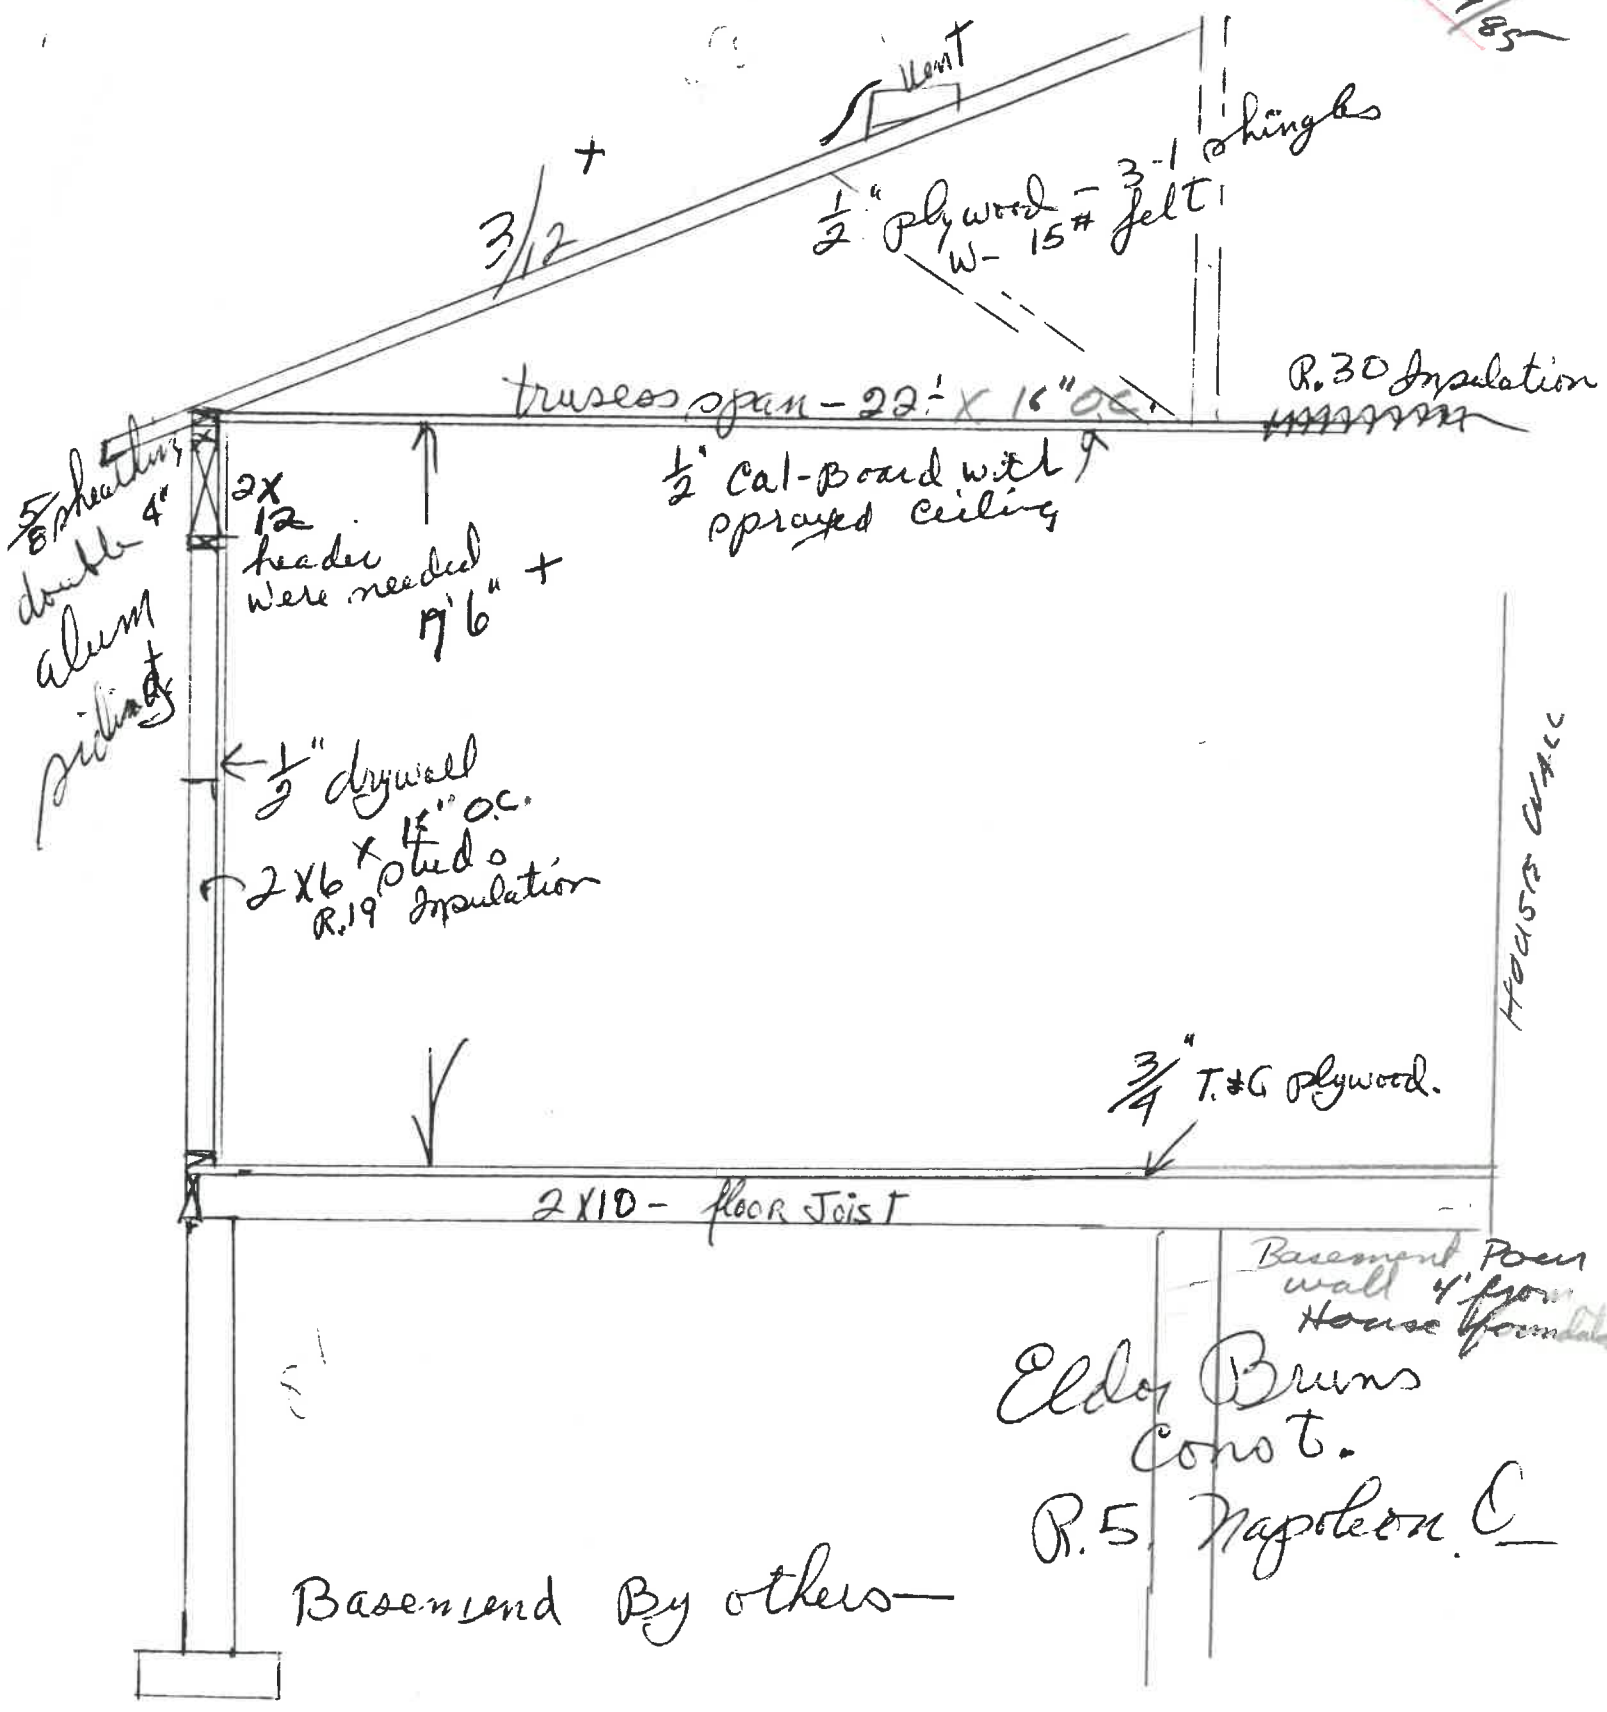 /85
Vent
+
3/12
1/2" plywood - 3-1 shingles
W- 15# felt
R.30 Insulation
trusses span - 22' X 16" O.C.
1/2" Cal-Board with
sprayed ceiling
5/8 sheathing
double 4"
alum
siding
2X
12
header
Were needed
7'6" +
1/2" drywall
2X6 X 16" O.C.
studs
R.19 Insulation
HOUSE WALL
3/4" T.&G plywood.
2X10 - floor Joist
Basement Pour
wall 4' from
House
8'
Eldor Bruns
Const.
R.5 Napoleon. O
Basemend By others